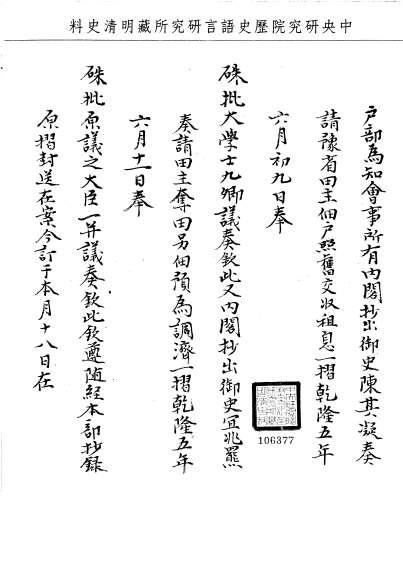 中央研究院歷史語言研究所藏明清史料
戶部為知會事所有內閣抄出御史陳其凝奏
請豫省田主佃戶照舊交收租息一摺乾隆五年
六月初九日奉
硃批大學士九卿議奏欽此又內閣抄出御史宜兆羆
奏請田主奪田另佃預為調濟一摺乾隆五年
六月十一日奉
硃批原議之大臣一并議奏欽此欽遵隨經本部抄錄
原摺封送在案今訂于本月十八日在
106377